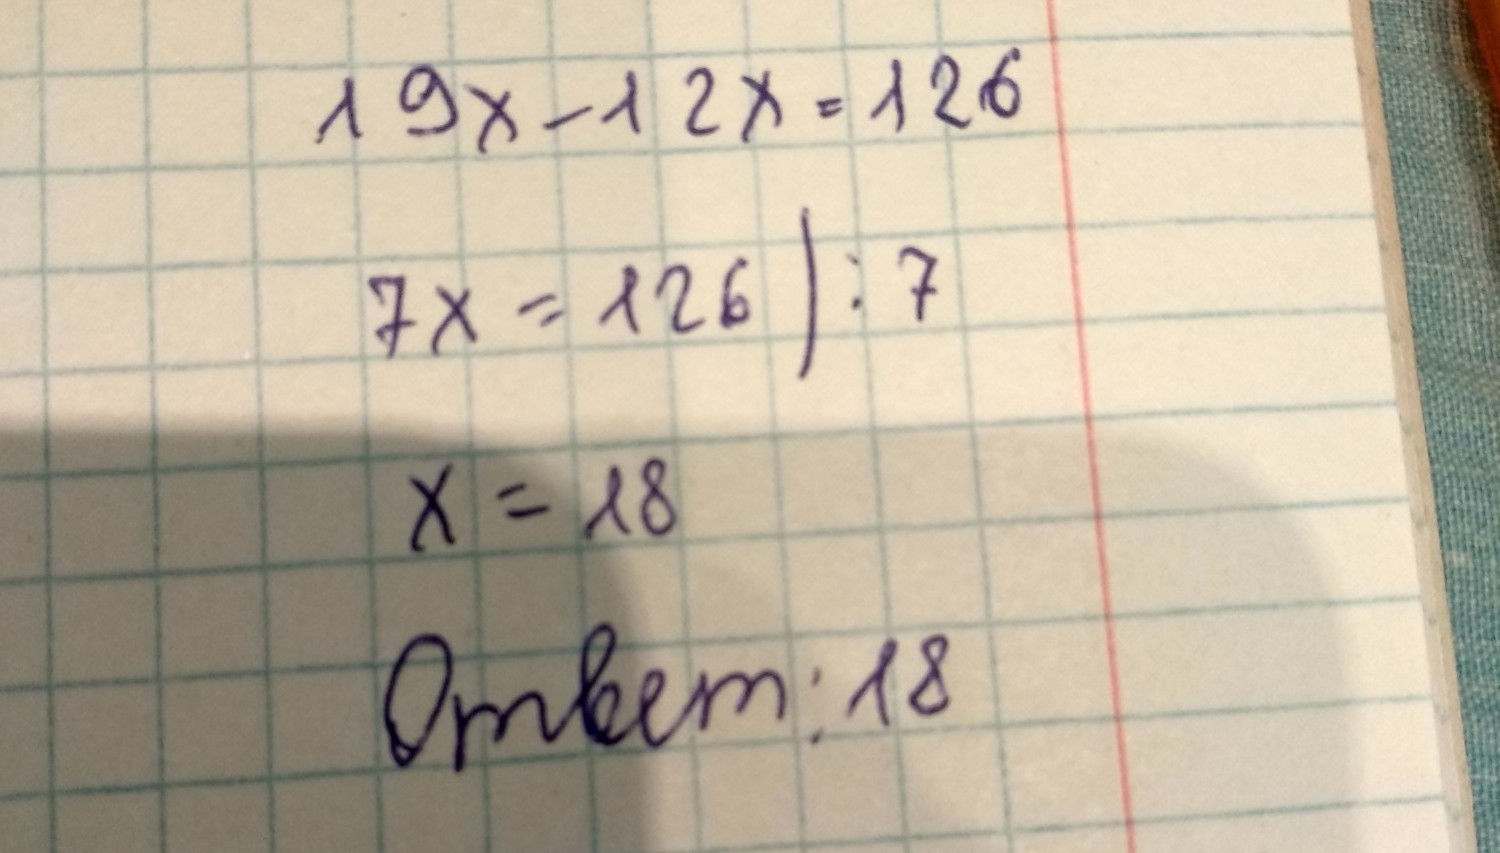 19x-12x=126
7x=126|:7
x=18
Ответ:18